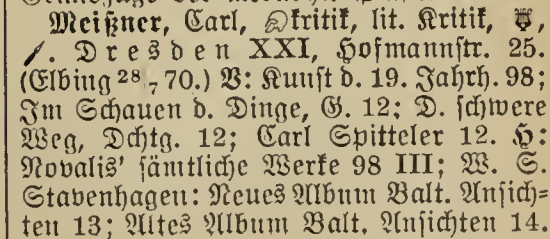 Meißner, Carl, Kritik, lit. Kritik,
Dresden XXI, Hofmannstr. 25.
(Elbing 28/7 70.) V: Kunst d. 19. Jahrh. 98;
Im Schauen d. Dinge, G. 12; D. schwere
Weg, Dchtg. 12; Carl Spitteler 12. H:
Novalis' sämtliche Werke 98 III; W. S.
Stavenhagen: Neues Album Balt. Ansich=
ten 13; Altes Album Balt. Ansichten 14.